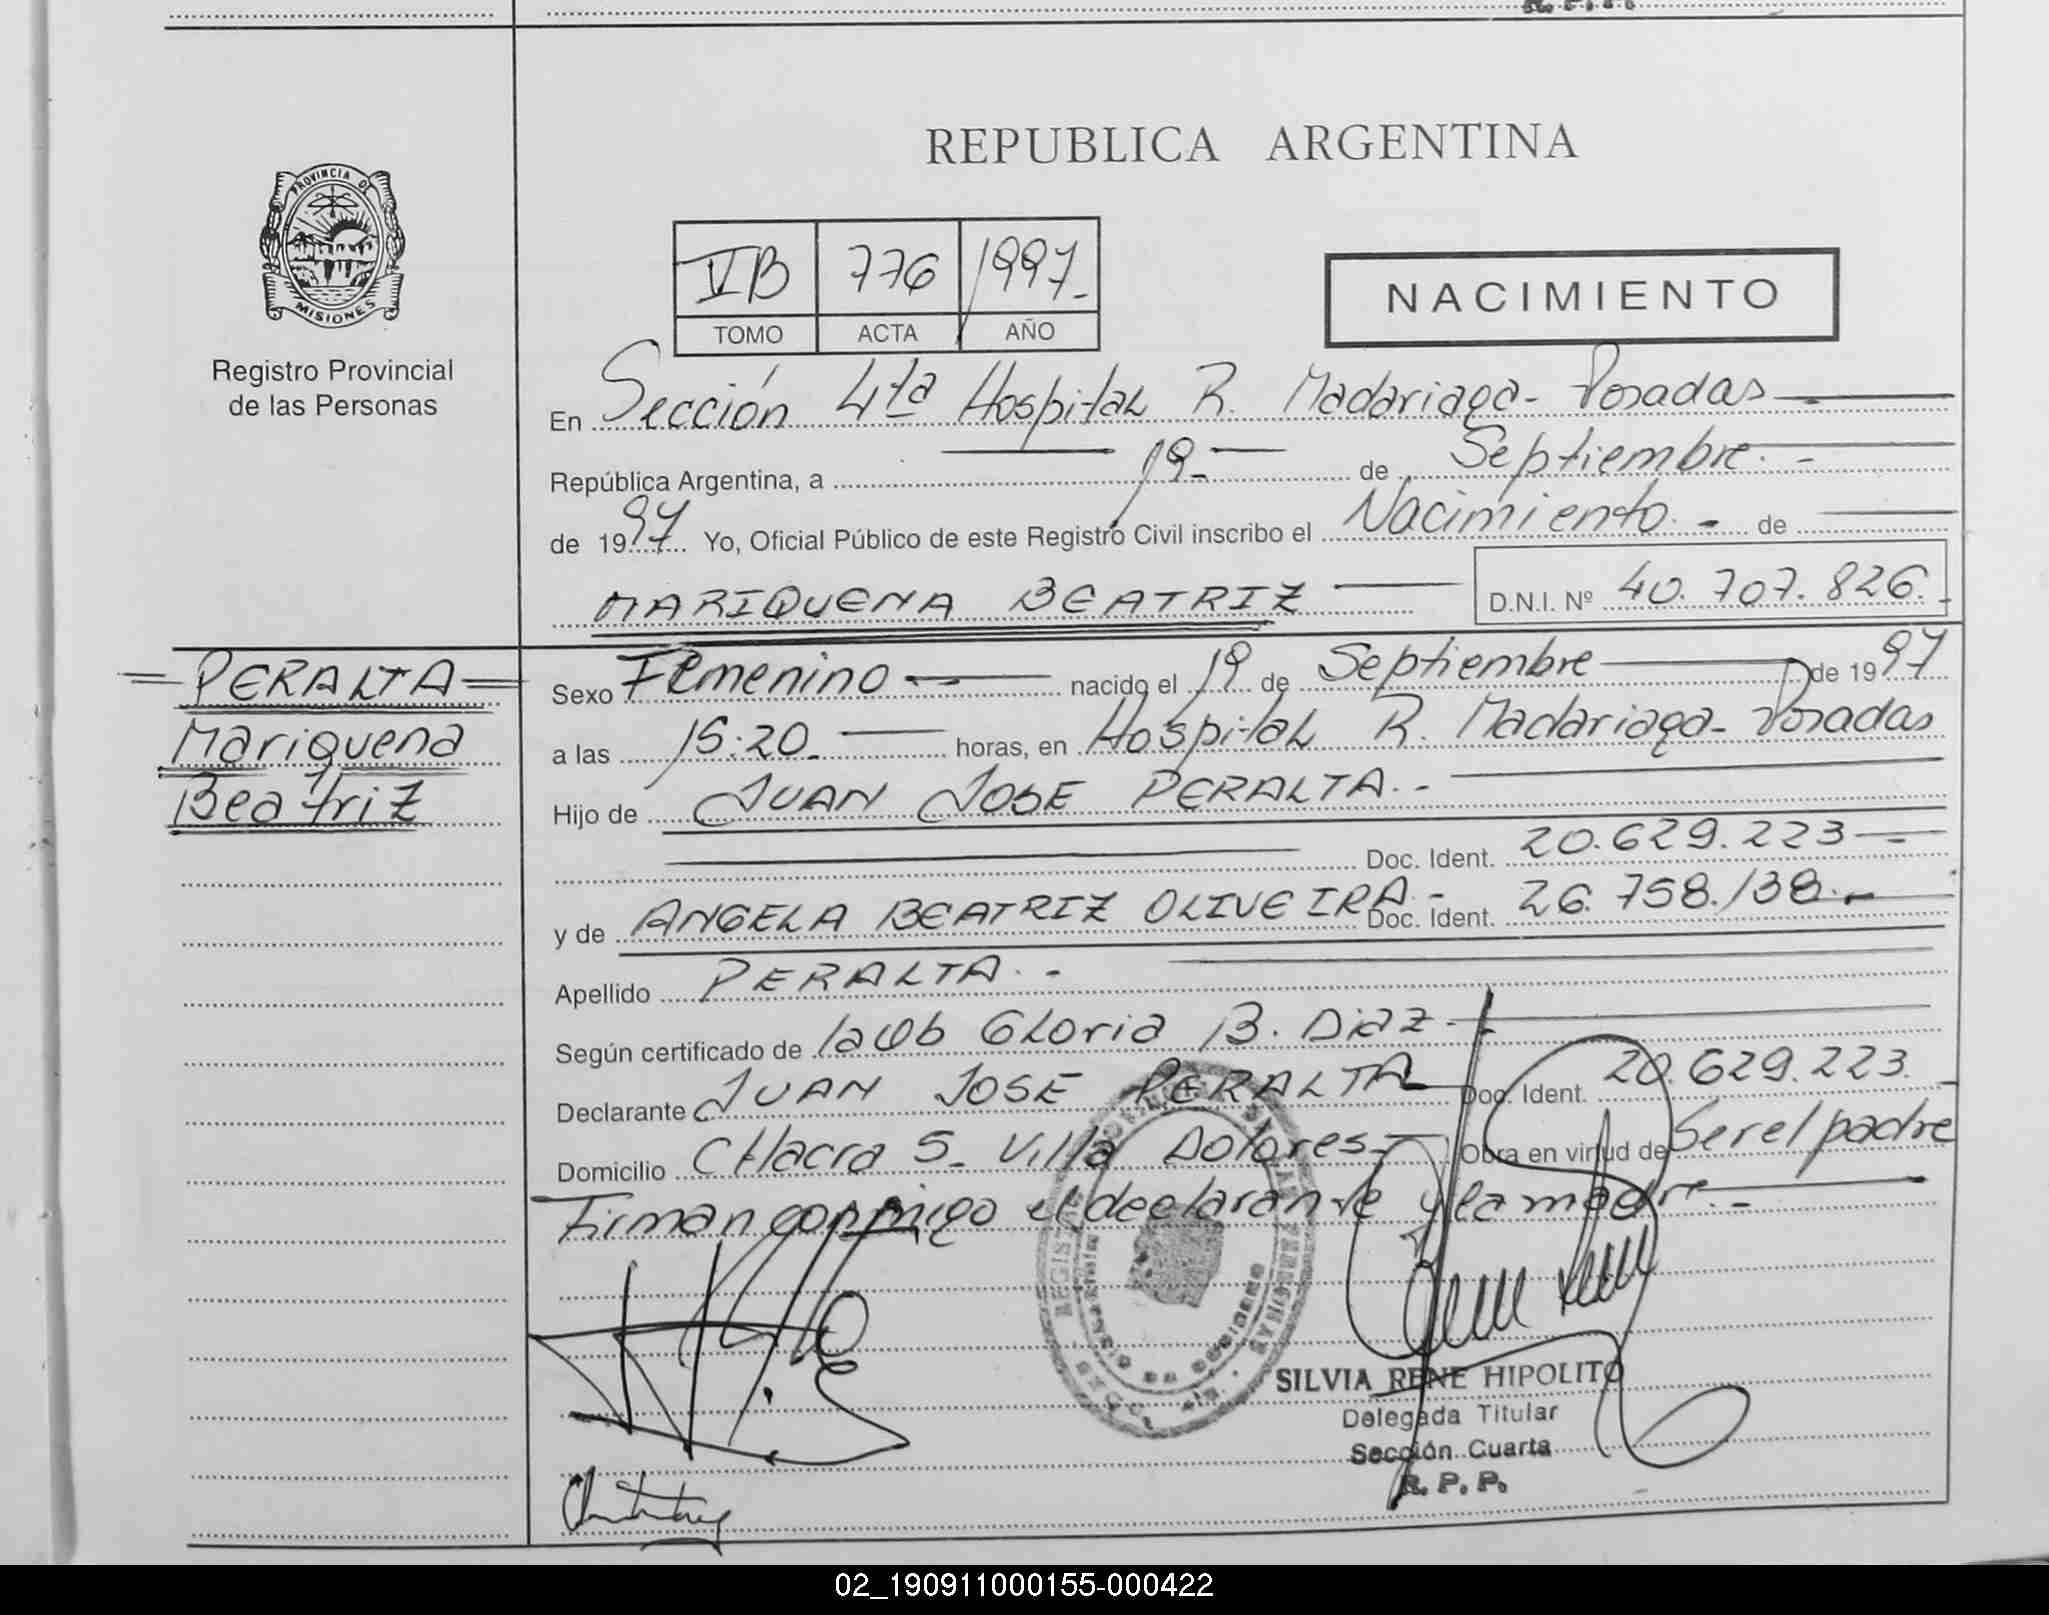 REPUBLICA ARGENTINA
PROVINCIA DE
MISIONES
Registro Provincial
de las Personas
VB 776 1997-
TOMO ACTA AÑO
NACIMIENTO
En Sección 4ta Hospital R. Madariaga- Posadas
República Argentina, a 19- de Septiembre.-
de 1997 Yo, Oficial Público de este Registro Civil inscribo el Nacimiento.- de
MARIQUENA BEATRIZ D.N.I. Nº 40.707.826.-
=PERALTA=
Mariquena
Beatriz
Sexo Femenino nacido el 19 de Septiembre de 1997
a las 15:20- horas, en Hospital R. Madariaga- Posadas
Hijo de JUAN JOSE PERALTA.-
Doc. Ident. 20.629.223-
y de ANGELA BEATRIZ OLIVEIRA.- Doc. Ident. 26.758.138.-
Apellido PERALTA.-
Según certificado de la Ob Gloria B. Diaz.-
Declarante JUAN JOSE PERALTA Doc. Ident. 20.629.223.-
Domicilio CHacra 5- Villa Dolores- Obra en virtud de Ser el padre
Firman conmigo el declarante y la madre.-
SILVIA RENE HIPOLITO
Delegada Titular
Sección Cuarta
R. P. P.
02_190911000155-000422